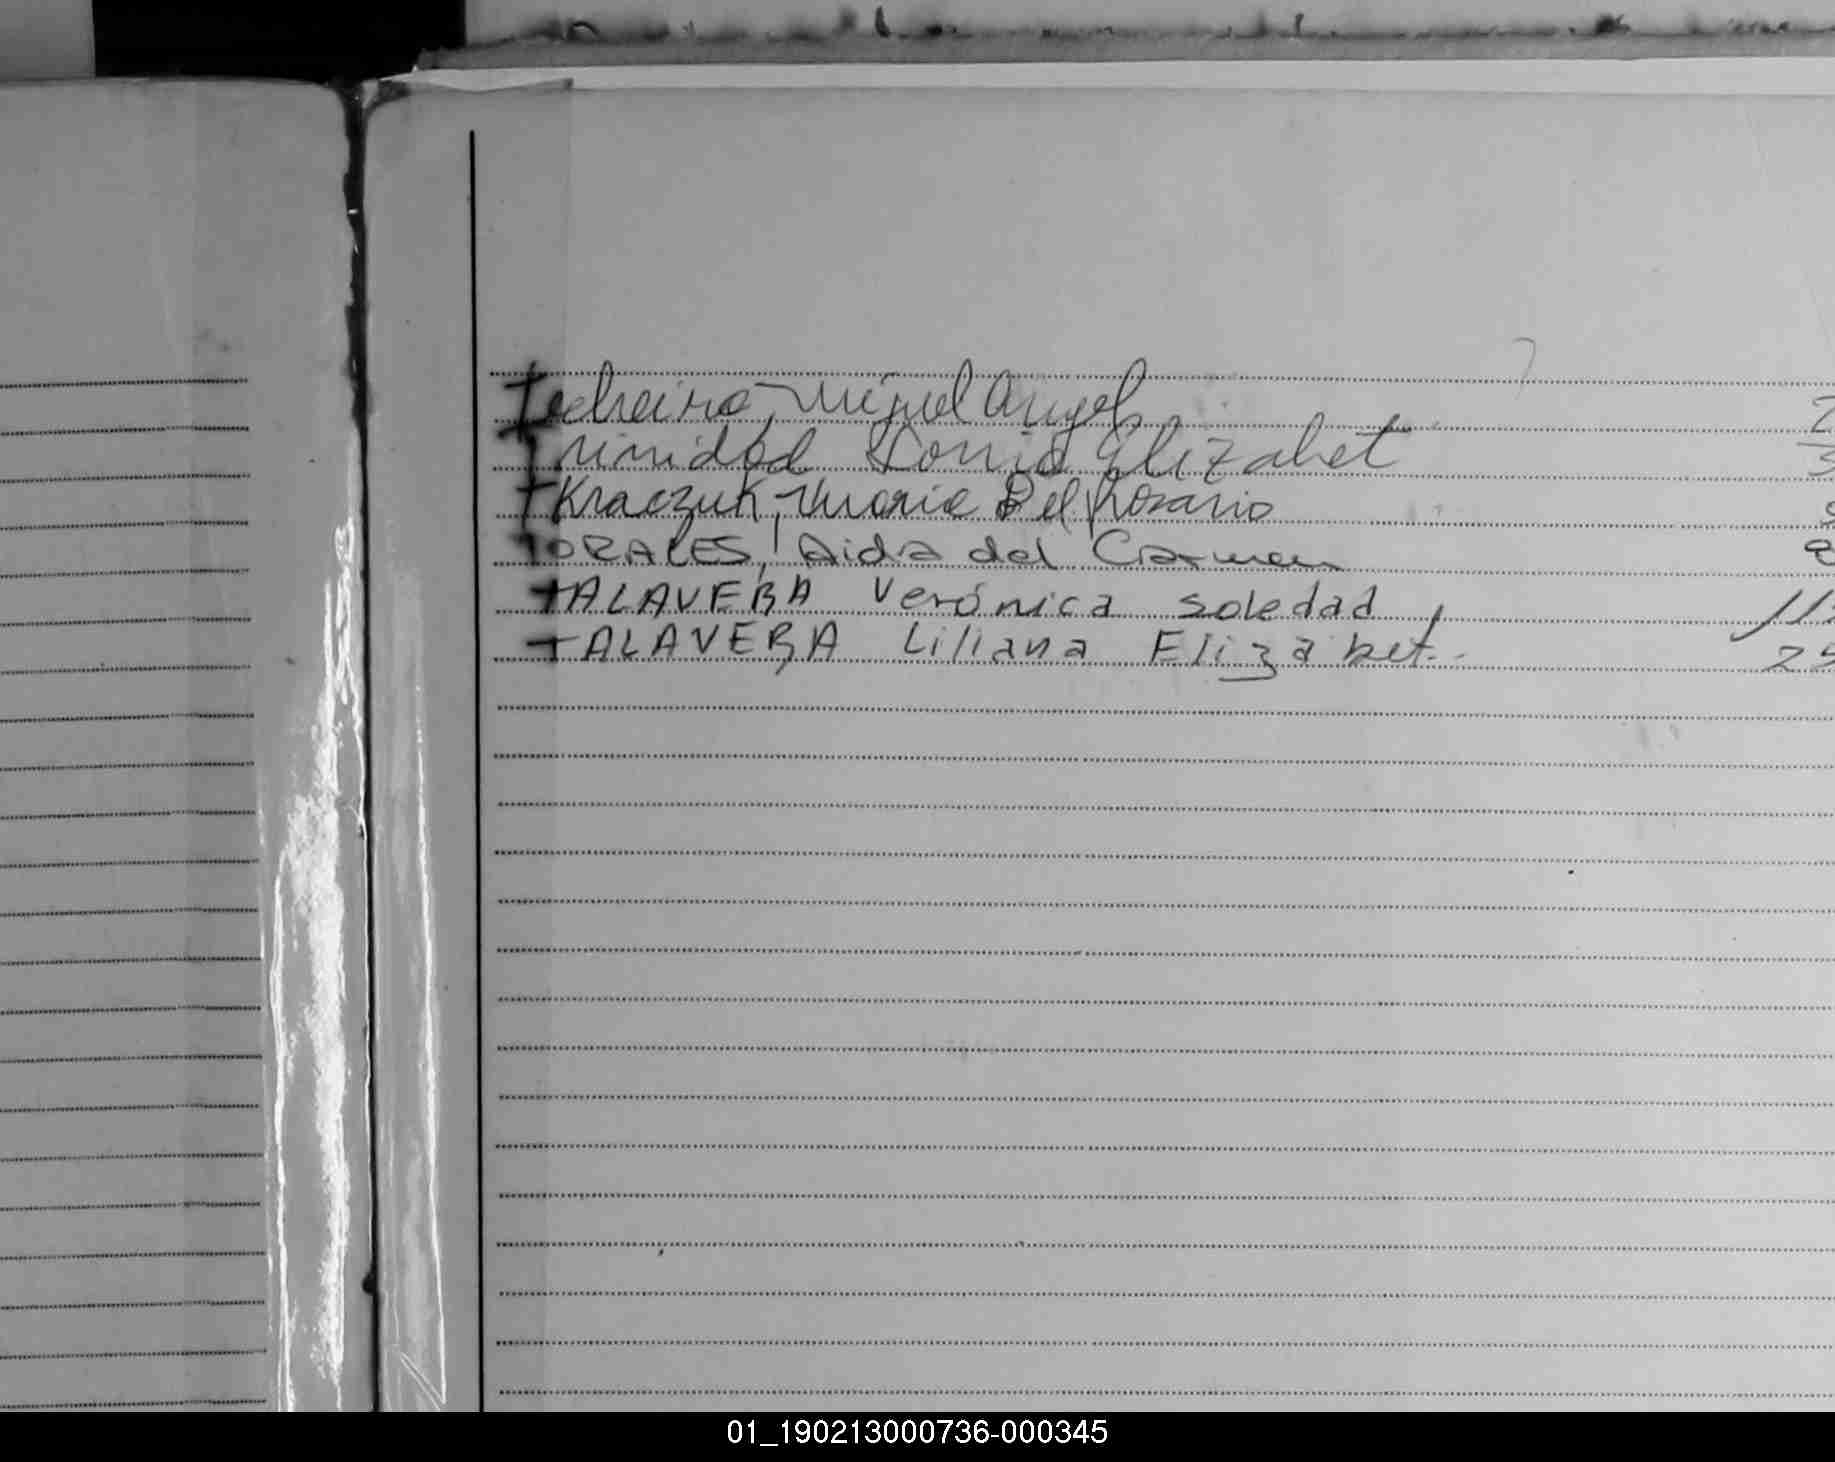 Tedreiro, Miguel Angel 2
Trinidad Sonia Elizabet 3
Tkraczuk, Maria Del Rosario
TORALES, Aida del Carmen 8
TALAVERA Verónica Soledad 11
TALAVERA Liliana Elizabet. 25
01_190213000736-000345